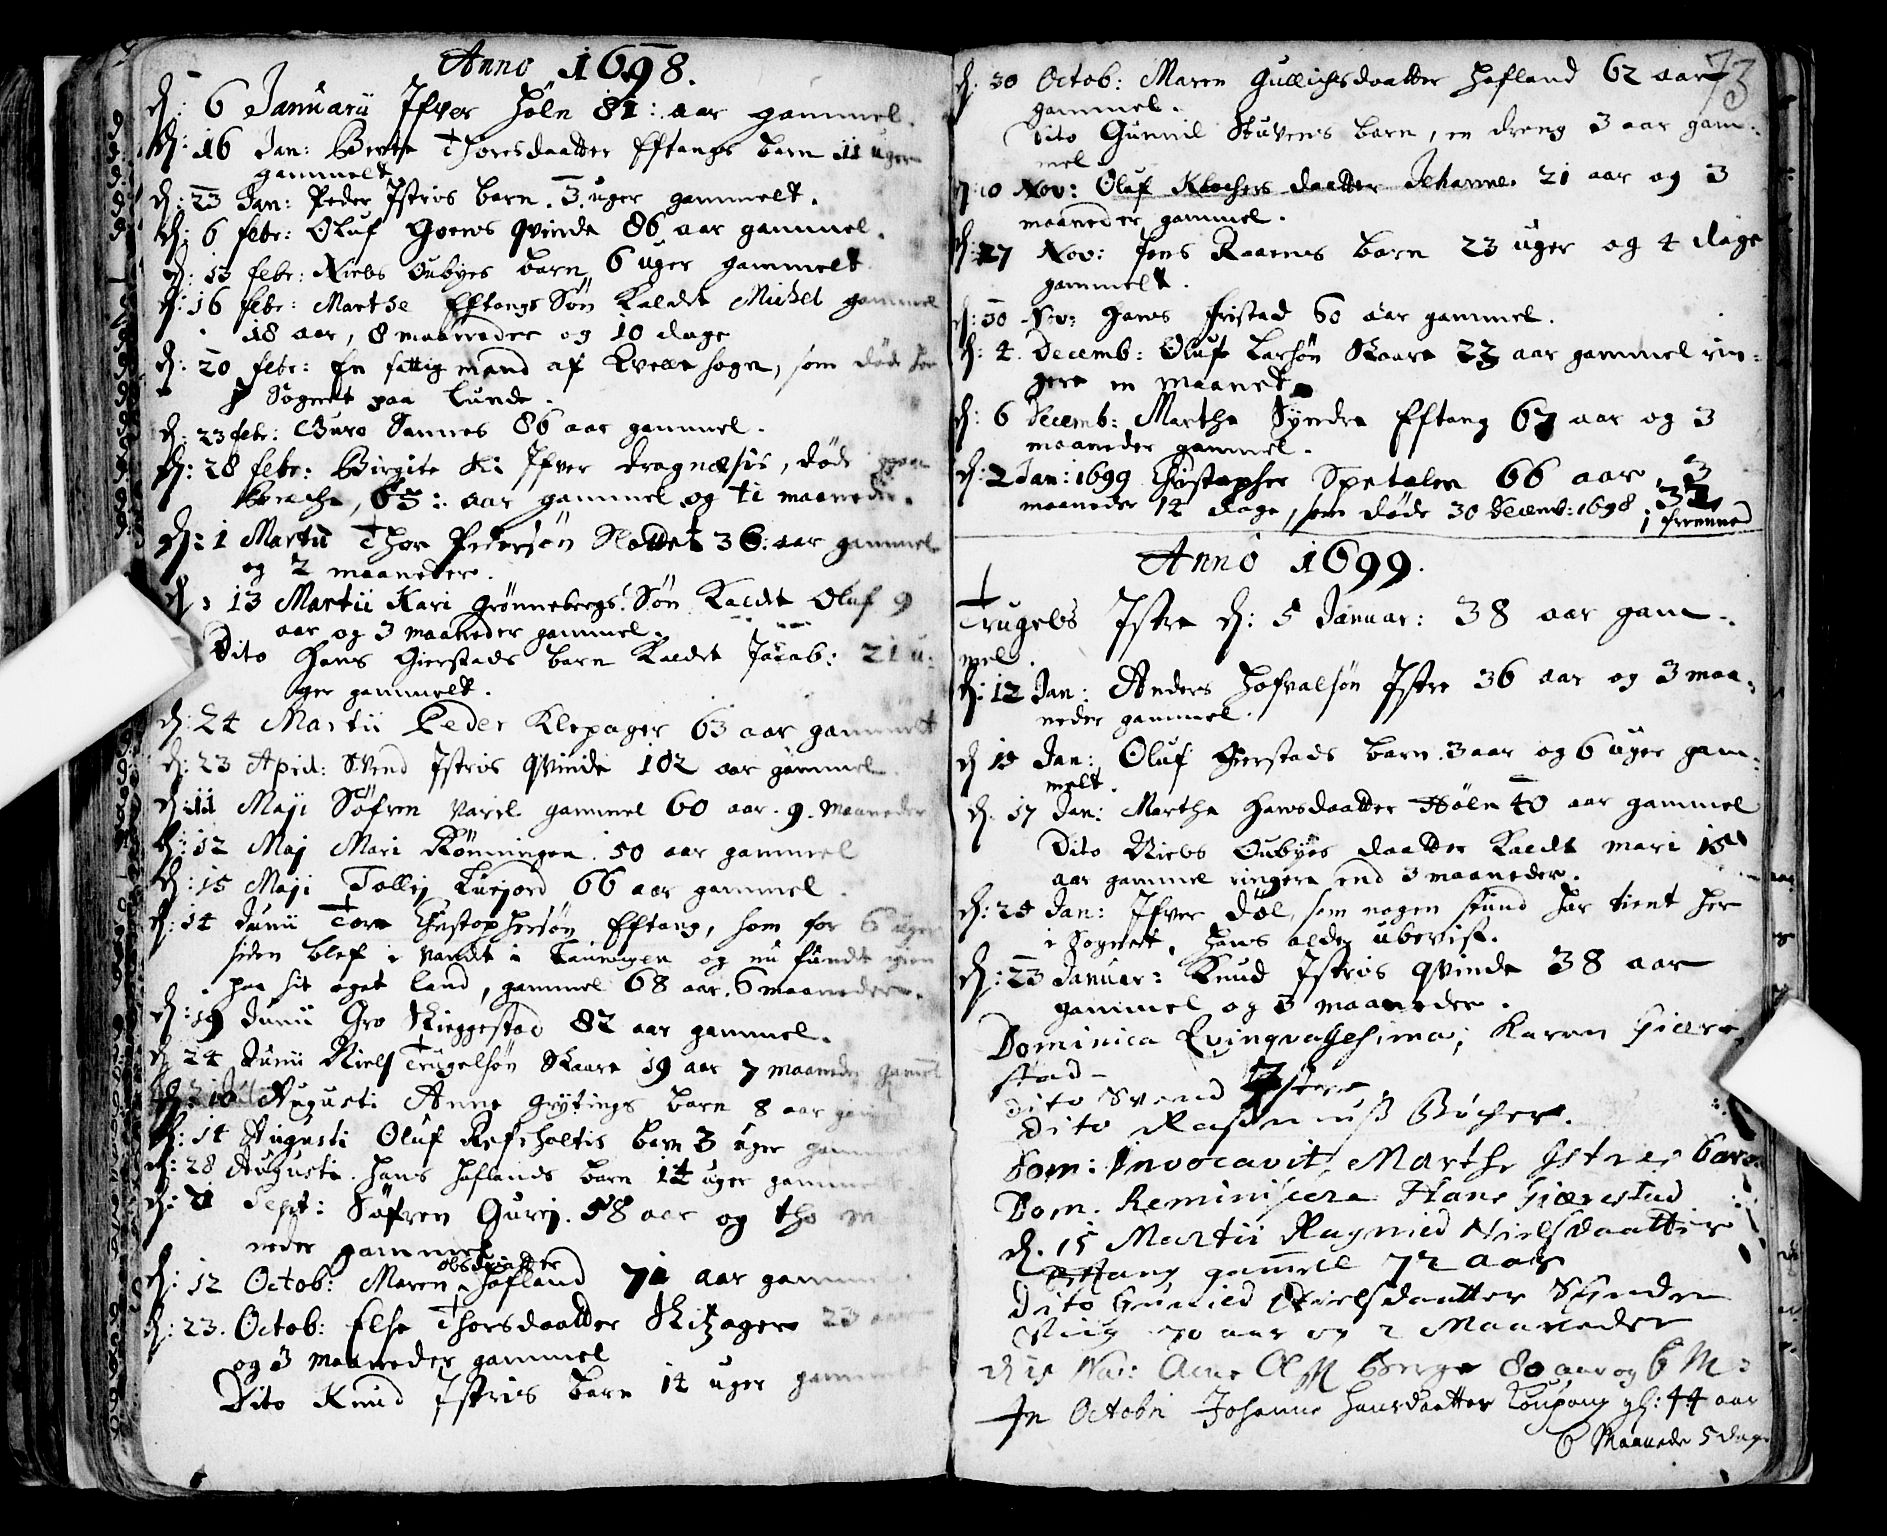 Anno 1698.
d: 6 Januarii Ifver Høln 81: aar gammel.
d: 16 Jan: Berte Thoresdaatter Eftangs barn 11 uger
gammelt
d: 23 Jan: Peder Istris barn. 3. uger gammelt.
d: 6 febr: Oluf Goens Qvinde 86 aar gammel.
d: 13 febr: Niels Oubyes barn 6 uger gammelt
d: 16 febr: Marthe Eftangs Søn kaldet Michel gammel
18 aar, 8 maaneder og 10 dage
d: 20 febr: En fattig mand af Qvelle sogn, som døde her
i Sognet paa Lunde.
d: 23 febr: Guro Sannes 86 aar gammel.
d: 28 febr: Birgite Ifver Dragnæsis, døde paa
63: aar gammel og ti maaneder.
d: 1 Martii Thor Pedersøn Slottet 36: aar gammel
og 2 maaneder.
d: 13 Martii Kari Grønnebergs Søn kaldet Oluf 9
aar og 3 maaneder gammel.
Dito Hans Gierstads barn kaldet Jacob: 21 u:
ger gammelt.
d: 24 Martii Peder Klepager 63 aar gammelt
d: 23 April: Svend Istris Qvinde 102 aar gammel
d: 11 Maji Søfren Varil gammel 60 aar. 9. maaneder
d: 12 Maj Mari Rønningen. 50 aar gammel
d: 15 Maji Tollij Tuejord 66 aar gammel.
d: 14 Junii Tore Christophersøn Eftang, som for 6 uger
siden blef i vandet i og nu fundet igien
paa sit eget land, gammel 68 aar. 6 maaneder.
d: 19 Junii Gro Skieggestad 82 aar gammel.
d: 24 Junii Niels Trugelsøn Skaare 19 aar 7 maaneder gamel
d: 10 Augusti Anne Grytings barn 8 aar gam
d: 14 Augusti Oluf Refsholtis barn 3 uger gammelt
d: 28 Augusti. Hans Haflands barn 14 uger gammelt
d: Sept: Søfren Gurij. 58 aar og tho m
neder gammel
d: 12 Octob: Maren olsdaatter Hafland 71 aar gammel
d: 23. Octob: Else Thorsdaatter Skitzager 23 aar
og 3 maaneder gammel
Dito Knud Istris barn 14 uger gammelt
73
d. 30 Octob: Maren Gullichsdaatter Hafland 62 aar
gammel.
Dito Gunnil Stuvens barn, en dreng 3 aar gam:
mel
d: 10 Nov: Oluf Klochers daatter Johanne. 21 aar og 3
maaneder gammel.
d: 27 Nov: Jens Raaens barn 23 uger og 4 dage
gammelt.
d: 30 Nov: Hans Fristad 60 aar gammel.
d: 4. Decemb: Oluf Larsøn Skaare 23 aar gammel rin:
gere en maanet
d: 6 Decemb: Marthe Syndre Eftang 67 aar og 3
maaneder gammel.
d: 2 Jan: 1699 Christopher Spetalen 66 aar, 3
maaneder 12 dage, som døde 30 Decemb: 1698
31
1 fremmed
Anno 1699.
Trugels Istre d: 5 Januar: 38 aar gam:
mel.
d: 12 Jan: Anders Hofvalsøn Istre 36 aar og 3 maa:
neder gammel.
d 15 Jan: Oluf Gierstads barn. 3 aar og 6 uger gam:
melt.
d. 17 Jan: Marthe Hansdaatter Høln 40 aar gammel
Dito Niels Oubyes daatter kaldet mari 15
aar gammel ringere end 3 maaneder.
d: 25 Jan: Ifver Døl, som nogen stund har tient her
i Sognet, hans alder ubevist.
d: 23 Januar: Knud Istris Qvinde 38 aar
gammel og 3 maaneder.
Dominica Qvinqvagesima; Karen Giære
stad
Dito Svend Istere
Dito Rasmuss Bøcher.
Dom: Invocavit, Marthe Istres barn
Dom. Reminiscere Hans Giærestad
d. 15 Martii Ragnild Nielsdaatter
Eftang gamell 72 aar
Dito Gunild Nielsdaatter Syndre
70 aar og 2 Maaneder
Berge 80 aar og 6 M:
In Octobri Johanne Hansdaatter Koupang gl: 44 aar
6 Maanede 5 dage